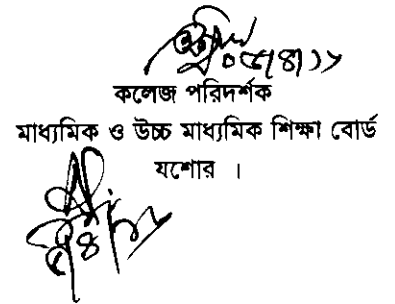 ০৫/৪/১১
কলেজ পরিদর্শক
মাধ্যমিক ও উচ্চ মাধ্যমিক শিক্ষা বোর্ড
যশোর ।